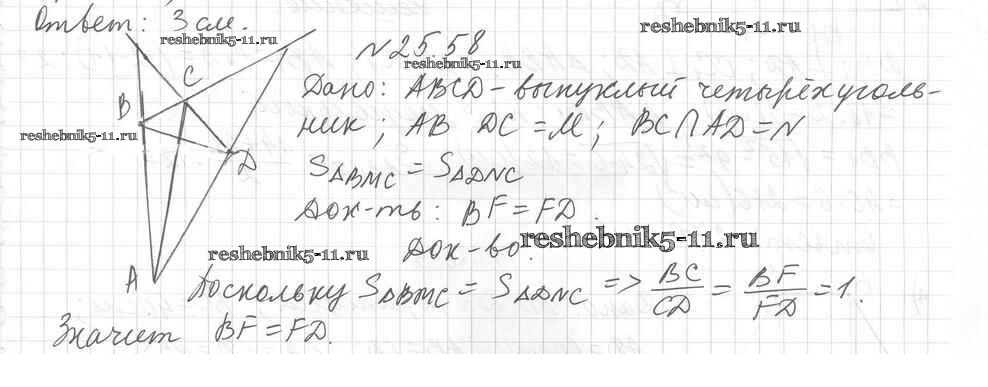 Ответ: 3 см.
reshebnik5-11.ru
reshebnik5-11.ru
N 25.58
reshebnik5-11.ru
C
Дано: ABCD – выпуклый четырёхуголь-
B
reshebnik5-11.ru
ник; AB DC = M; BC ∩ AD = N
D
S△BMC = S△DNC
Док-ть: BF = FD.
reshebnik5-11.ru
Док-во:
reshebnik5-11.ru
A
Поскольку S△BMC = S△DNC => BC/CD = BF/FD = 1.
Значит BF = FD.